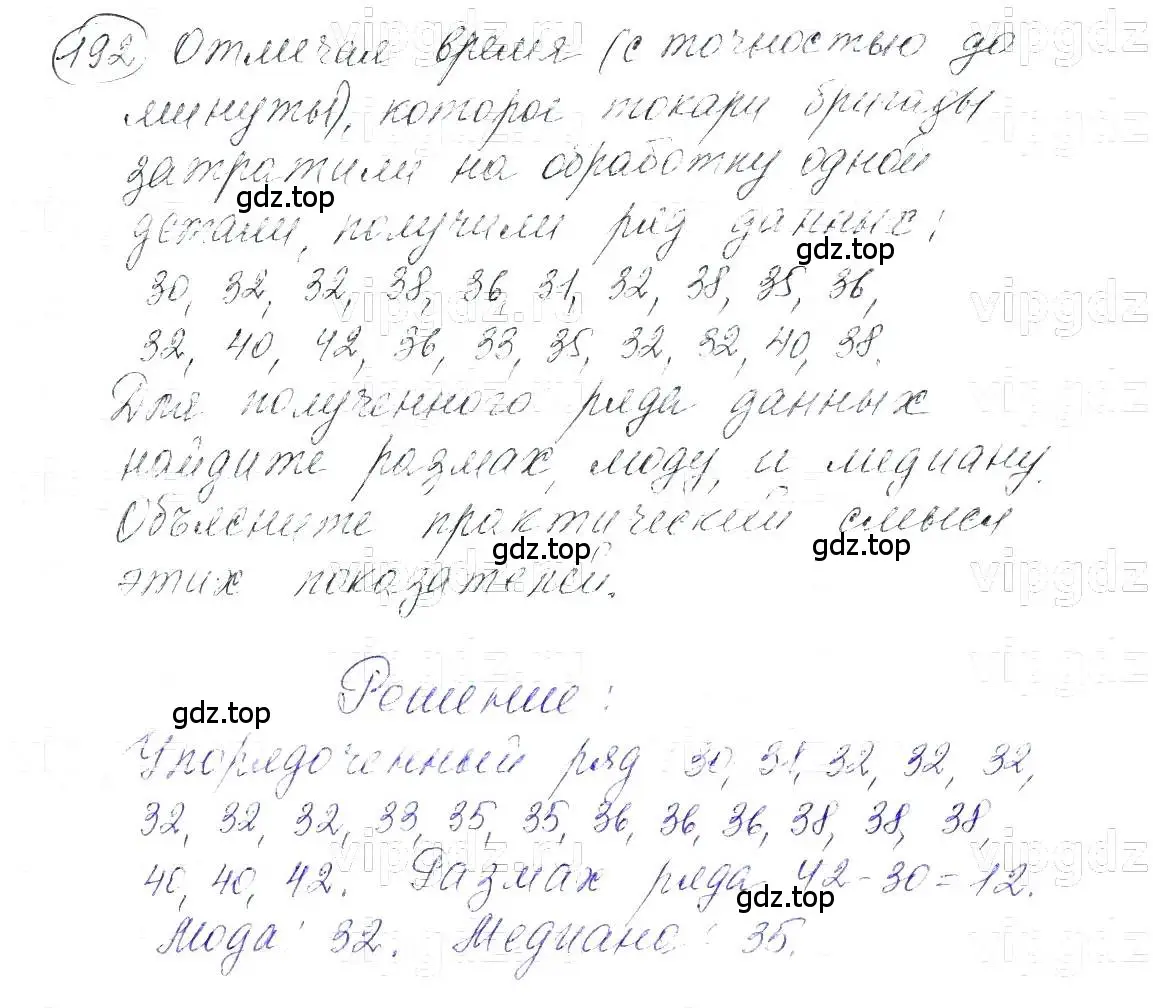 192 Отмечая время (с точностью до
минуты), которое токари бригады
затратили на обработку одной
gdz.top
детали, получили ряд данных:
gdz.top
30, 32, 32, 38, 36, 31, 32, 38, 35, 36,
vipgdz.ru vipgdz
32, 40, 42, 36, 33, 35, 32, 32, 40, 38.
Для полученного ряда данных
найдите размах, моду, и медиану.
Объясните практический смысл
gdz.top gdz.top
этих показателей.
vipgdz
Решение:
gdz.top
Упорядоченный ряд 30, 31, 32, 32, 32,
32, 32, 32, 33, 35, 35, 36, 36, 36, 38, 38, 38,
vipgdz.ru vipgdz
40, 40, 42. Размах ряда 42-30=12.
gdz.top
Мода: 32. Медиана: 35.